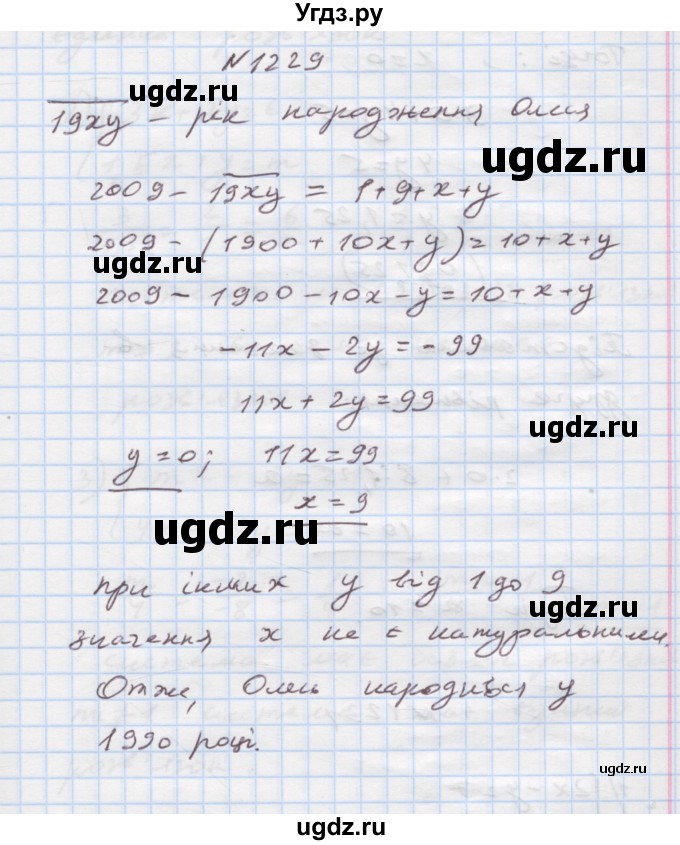 Угдз.ру
N1229
19xy – рік народження Олеся
2009 – 19xy = 1+9+x+y
ugdz.ru
2009 – (1900 + 10x + y) = 10 + x + y
ugdz.ru
2009 – 1900 – 10x – y = 10 + x + y
ugdz.ru
-11x – 2y = -99
11x + 2y = 99
ugdz.ru
y = 0; 11x = 99
x = 9
ugdz.ru
при інших y від 1 до 9
ugdz.ru
значення x не є натуральними.
Отже, Олесь народився у
1990 році.
ugdz.ru
ugdz.ru